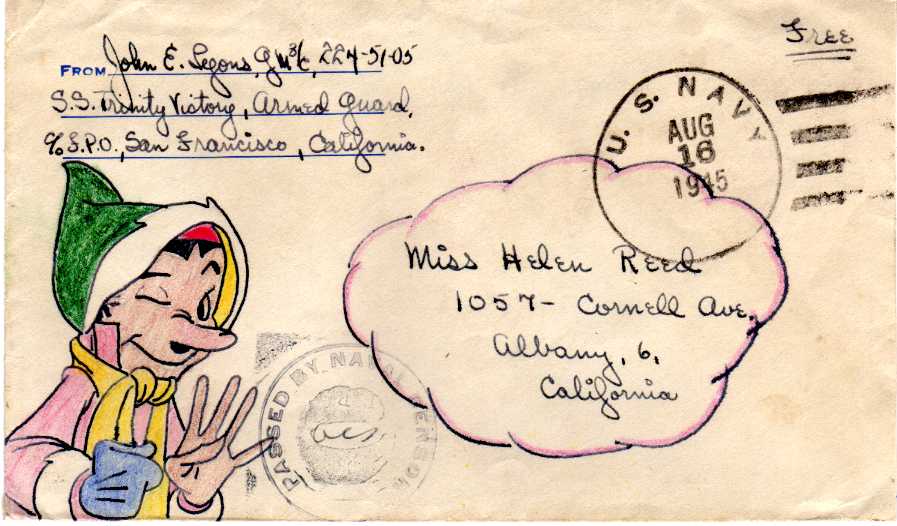 Free
FROM John E. Legons, GM3/c, 224-51-05
S.S. Trinity Victory, Armed Guard,
c/o F.P.O., San Francisco, California.
U. S. NAVY
AUG
16
1945
Miss Helen Reed
1057- Cornell Ave.
Albany, 6,
California
PASSED BY NAVAL CENSOR